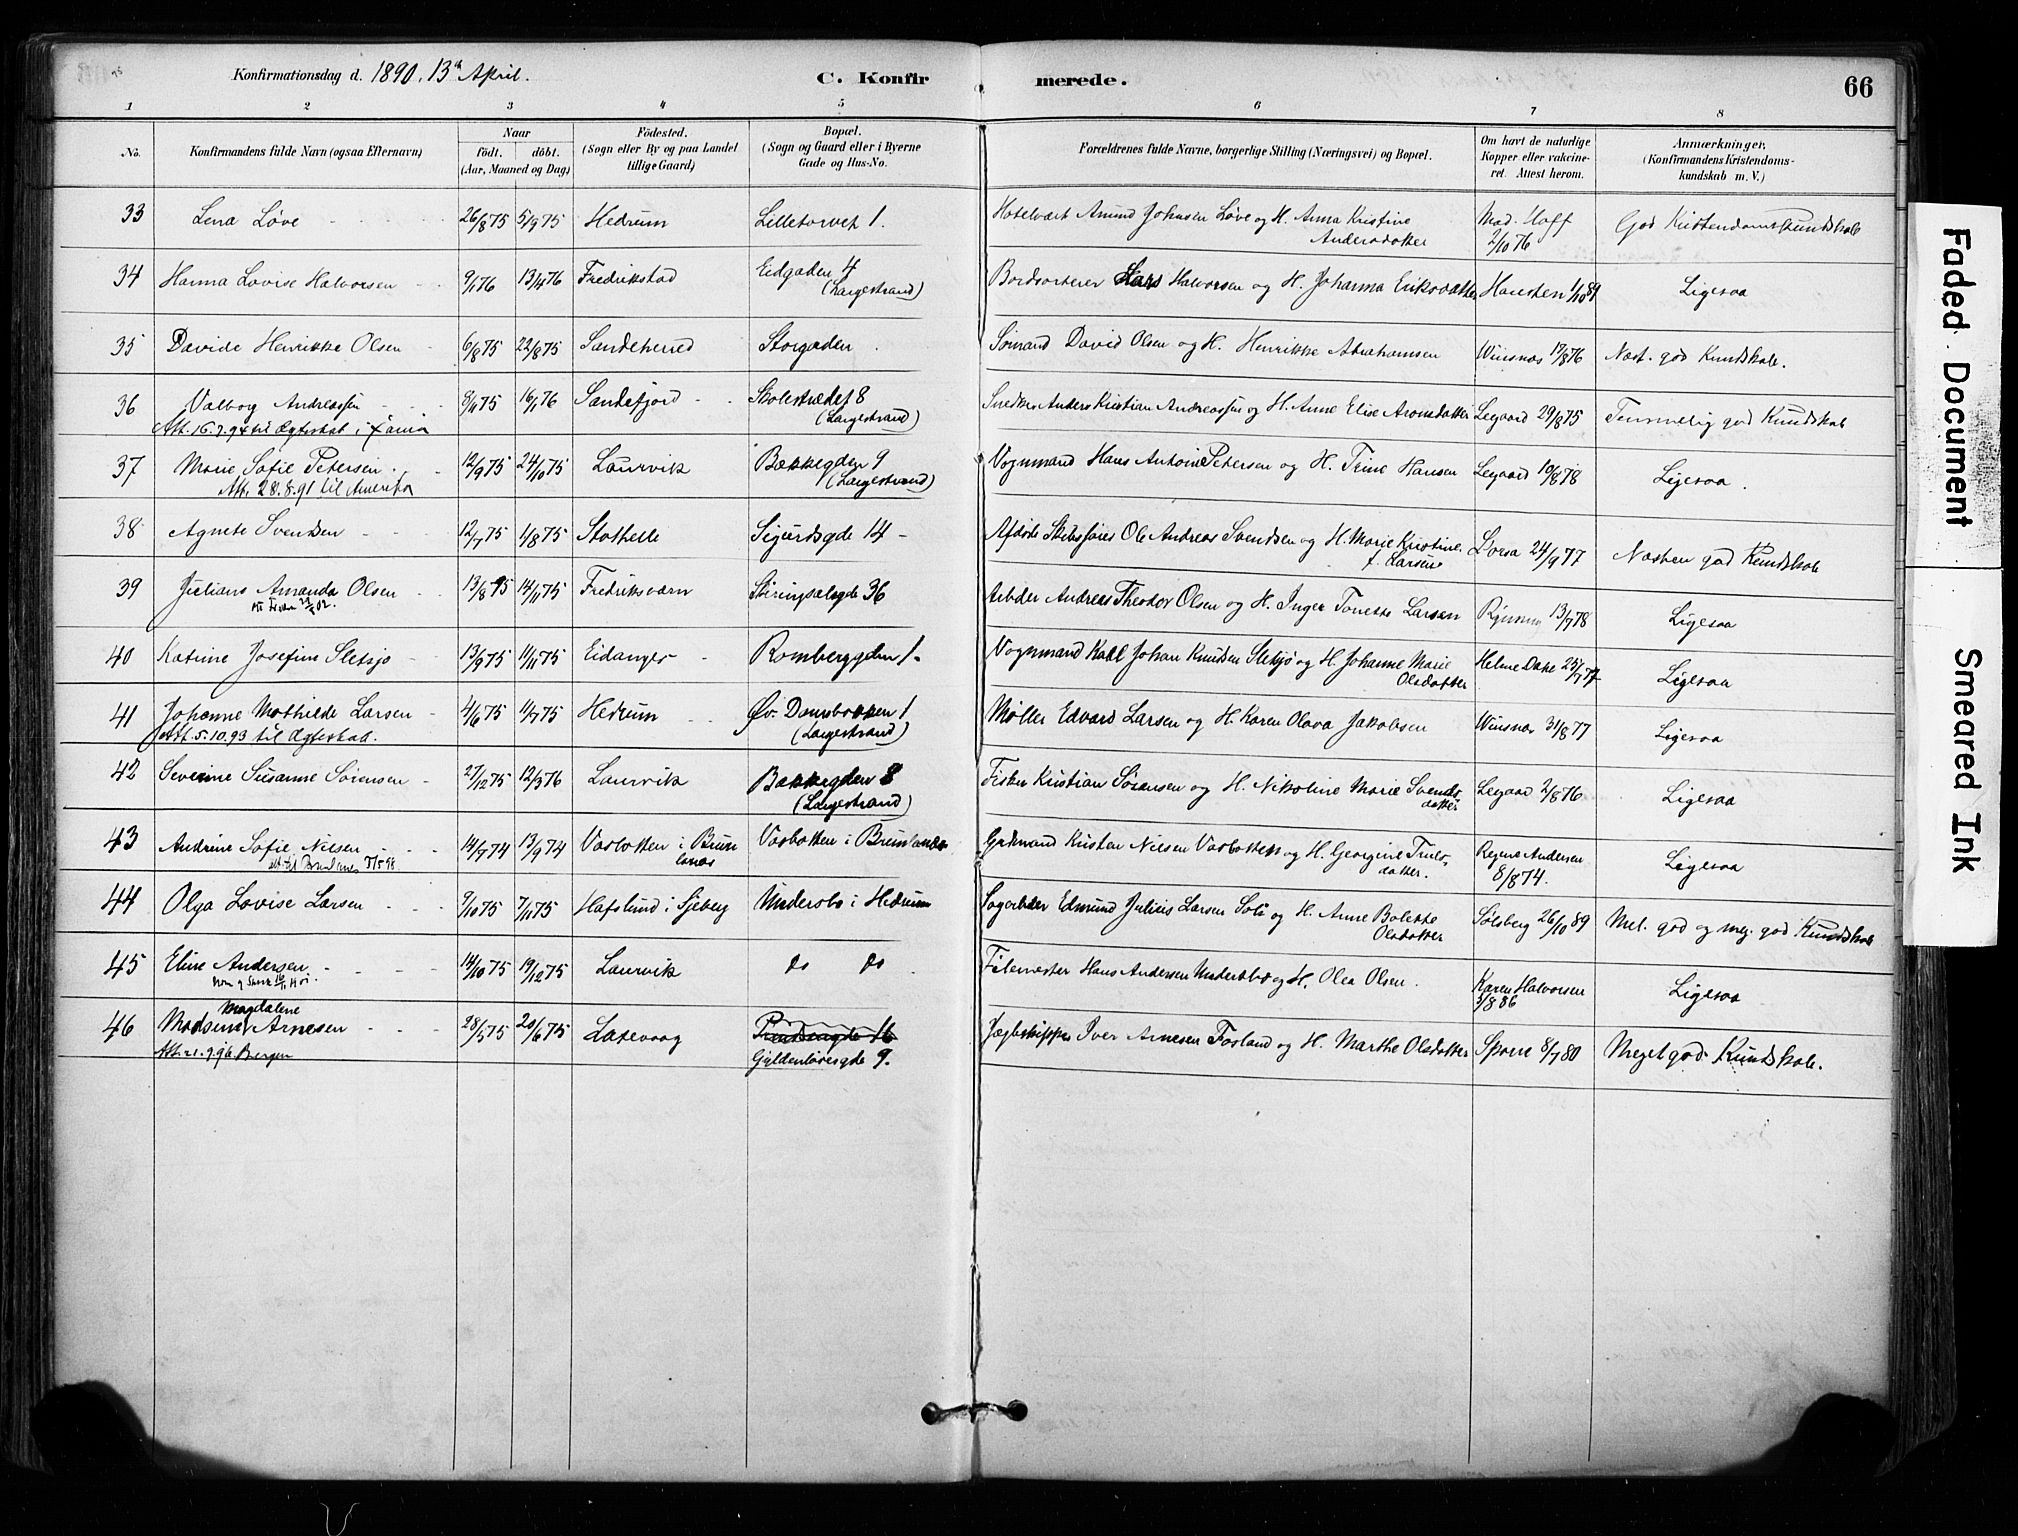 Konfirmationsdag d. 1890. 13de April.
C. Konfirmerede.
66
1 2 3 4 5 6 7 8
No.
Konfirmandens fulde Navn (ogsaa Efternavn)
Naar
født. døbt.
(Aar, Maaned og Dag)
Fødested.
(Sogn eller By og paa Landet
tillige Gaard)
Bopæl.
(Sogn og Gaard eller i Byerne
Gade og Hus-No.
Forældrenes fulde Navne, borgerlige Stilling (Næringsvei) og Bopæl.
Om havt de naturlige
Kopper eller vakcine-
ret. Attest herom.
Anmærkninger,
(Konfirmandens Kristendoms-
kundskab m. V.)
33 Lena Løve 26/8 75 5/9 75 Hedrum Lilletorvet 1. Hotelvært Amund Johnsen Løve og H. Anna Kristine Mad. Hoff God Kristendomskundskab
Andersdatter 2/10 76
34 Hanna Lovise Halvorsen 9/1 76 13/4 76 Fredrikstad Eidgaden 4 Bordsorterer Lars Halvorsen og H. Johanna Eriksdatter Hansten 1/10 89 Ligesaa
(Langestrand)
35 Davide Henrikke Olsen 6/8 75 22/8 75 Sandeherred Storgaden Sømand David Olsen og H. Henrikke Abrahamsen Winsnæs 17/8 76 Næst. god Kundskab.
36 Valborg Andreassen 8/11 75 16/1 76 Sandefjord Skolestrædet 8 Snedker Anders Kristian Andreassen og H. Anne Elise Aronsdatter Legaard 29/8 75 Temmelig god Kundskab
Att. 16.7.94 til Ægteskab i Xania (Langestrand)
37 Marie Sofie Petersen 12/9 75 24/10 75 Laurvik Bækkegden 9 Vognmand Hans Antoine Petersen og H. Trine Hansen Legaard 10/8 78 Ligesaa
Att. 28.8.91 til Amerika (Langestrand)
38 Agnete Svendsen 12/7 75 1/8 75 Stathelle Sigurdsgde 14 Afdøde Skibsfører Ole Andreas Svendsen og H. Marie Kristine Lorsa 24/9 77 Næsten god Kundskab
f. Larsen
39 Juliane Amanda Olsen 13/8 75 14/11 75 Fredriksværn Skiringsalsgde 36 Arbeider Andreas Theodor Olsen og H. Inger Tonette Larsen 13/7 78 Ligesaa
40 Katrine Josefine Sletsjø 13/9 75 11/11 75 Eidanger Romberggden 1. Vognmand Karl Johan Knudsen Sletsjø og H. Johanne Marie Helme Dake 25/7 77 Ligesaa
Olsdatter
41 Johanne Mathilde Larsen 4/6 75 11/7 75 Hedrum Øv. Damsbakken 1 Møller Edvard Larsen og H. Karen Olava Jakobsen Winsnæs 31/8 77 Ligesaa
Att. 5.10.93 til Ægteskab. (Langestrand)
42 Severine Susanne Sørensen 27/12 75 12/3 76 Laurvik Bækkegden 8 Fisker Kristian Sørensen og H. Nikoline Marie Svends- Legaard 2/8 76 Ligesaa
(Langestrand) datter
43 Andrine Sofie Nilsen 14/7 74 13/9 74 Varbakken i Brun Varbakken i Brunlanæs Grdmand Kristen Nilsen Varbakken og H. Georgine Truls- Regine Andersen Ligesaa
lanæs datter. 8/8 74.
44 Olga Lovise Larsen 9/10 75 7/11 75 Hafslund i Skjeberg Undersbo i Hedrum Sagarbder Edmund Julius Larsen Sole og H. Anne Bolette Sølsberg 26/10 89 Mel. god og meg. god Kundskab
Olsdatter
45 Eline Andersen 14/10 75 19/12 75 Laurvik do do Filemester Hans Andersen Undersbo og H. Olea Olsen. Karen Halvorsen Ligesaa
3/8 86
Magdalene
46 Madsine Arnesen 28/5 75 20/6 75 Laxevaag Jægteskipper Iver Arnesen Fosland og H. Marthe Olsdatter Sporre 8/7 80 Meget god Kundskab.
Att. 21.9.96 Bergen Gyldenløvesgde 9.
Faded Document
Smeared Ink